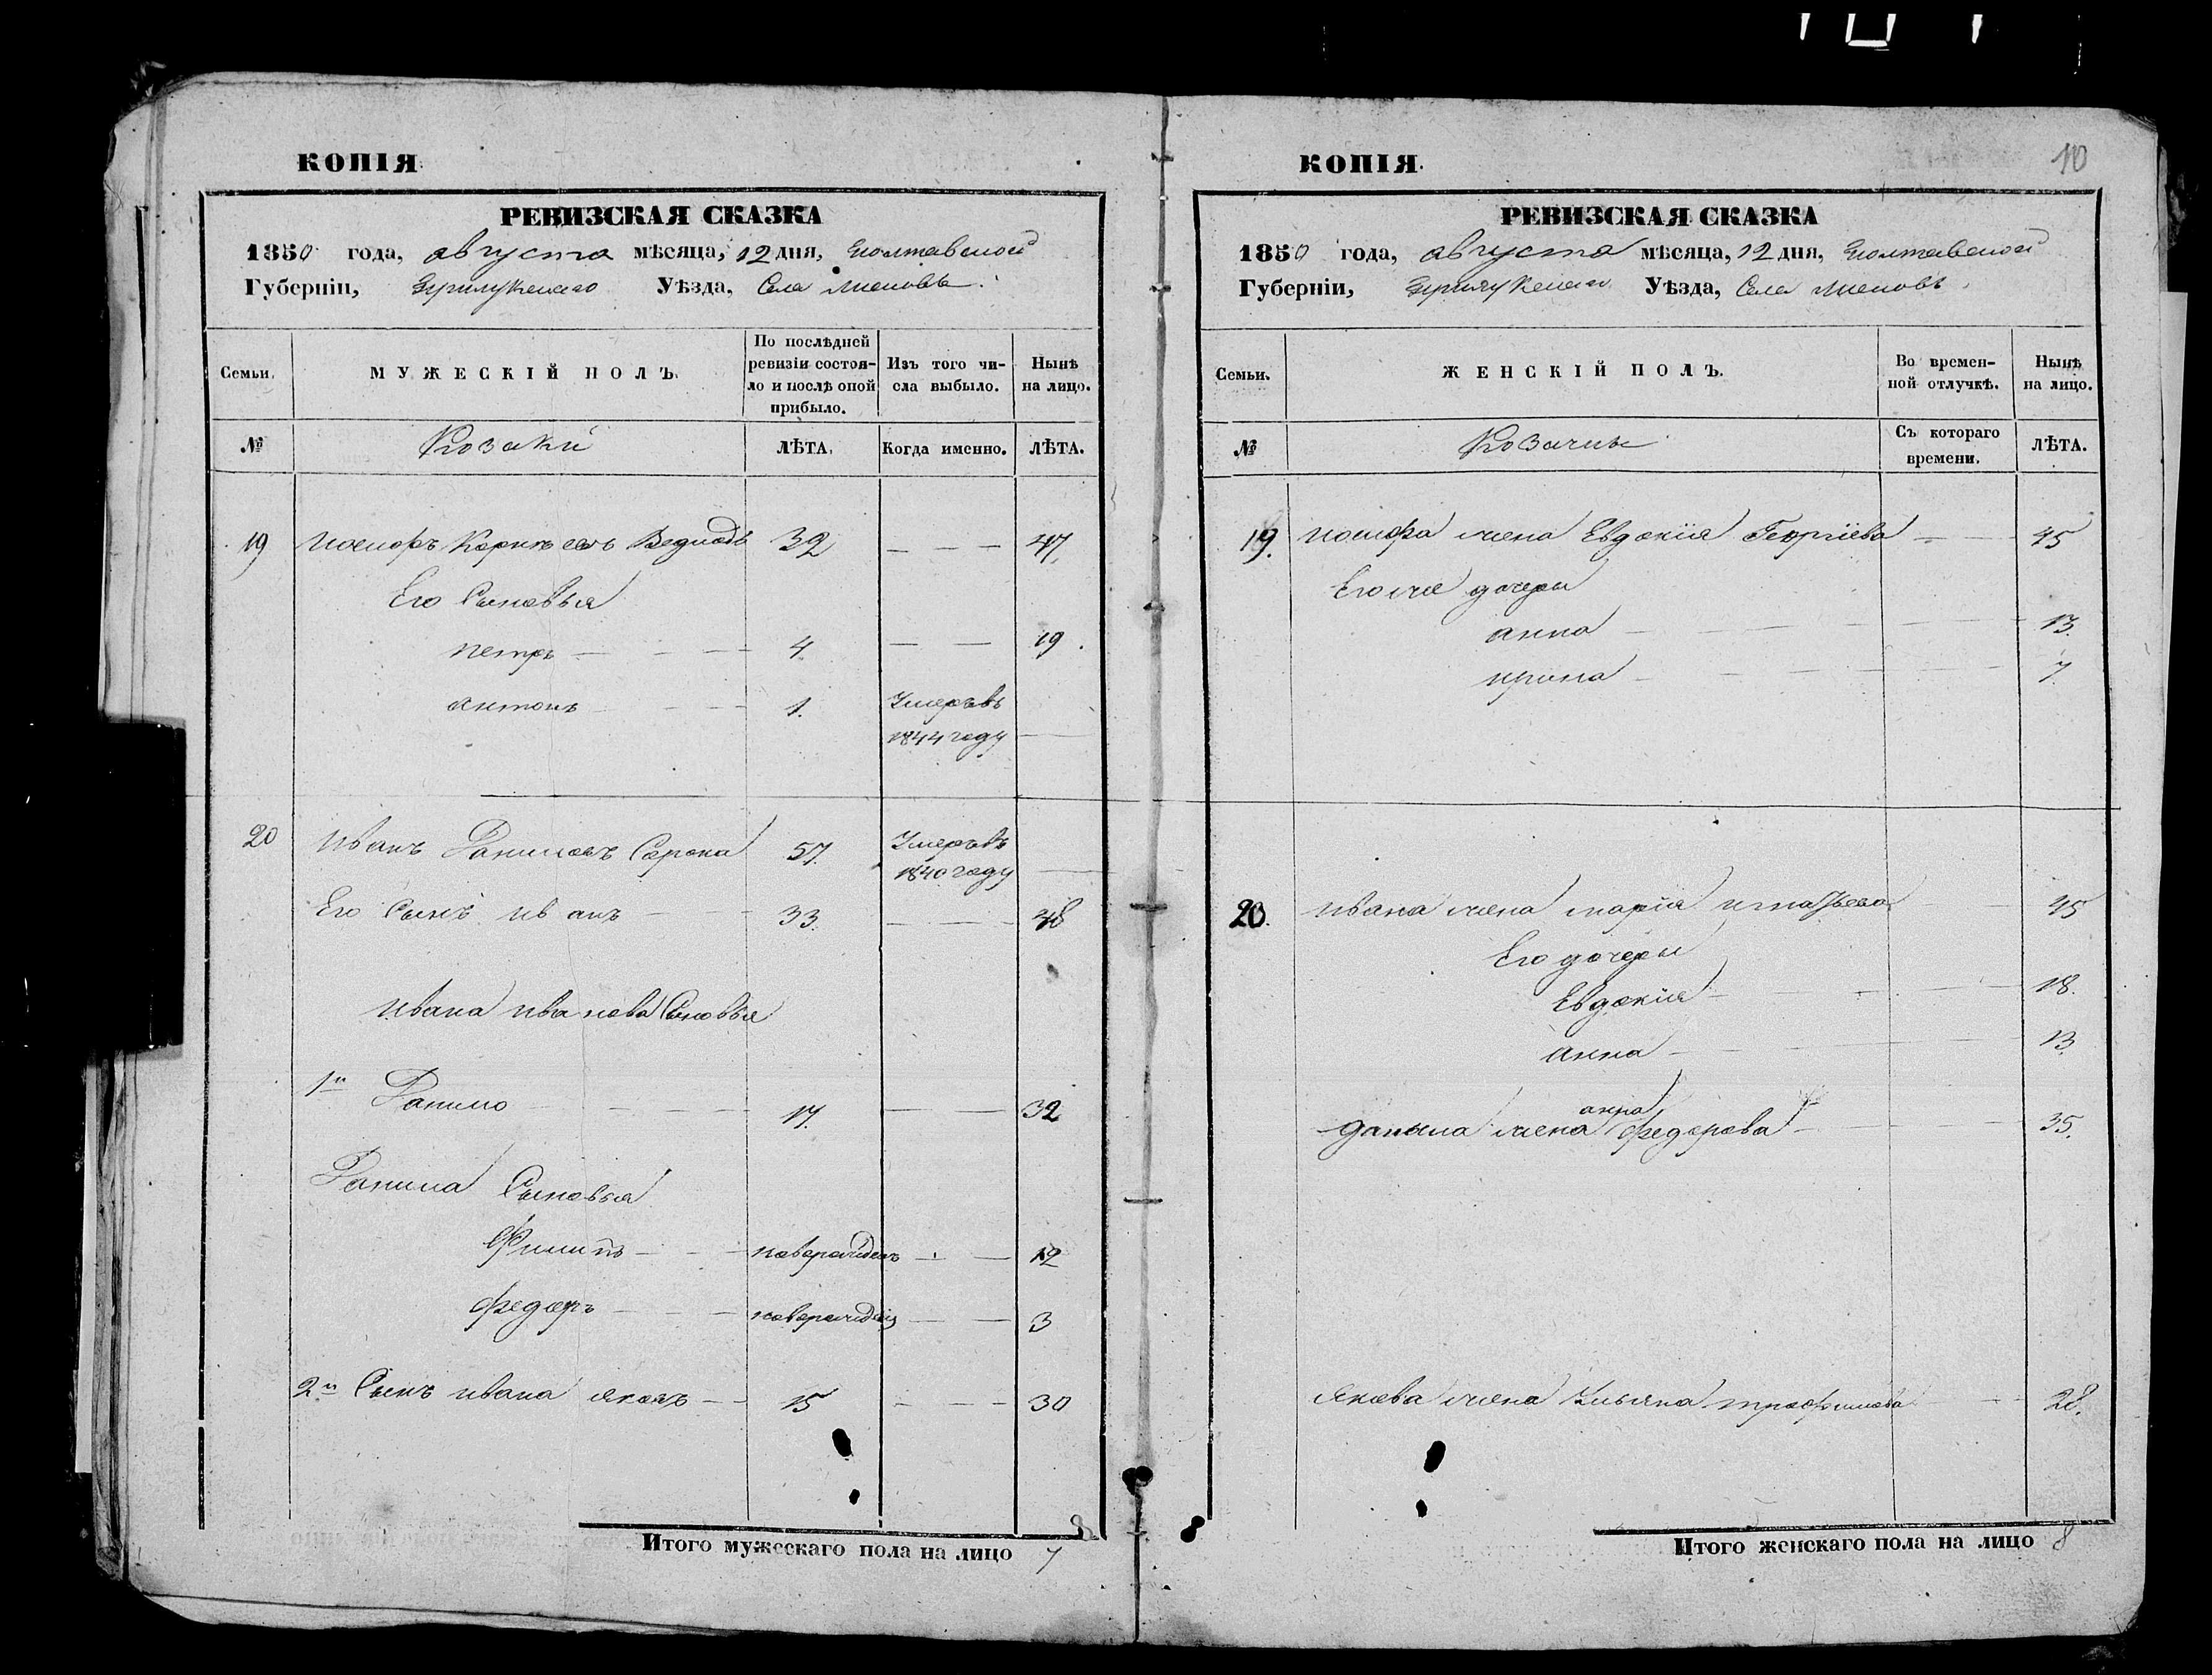 КОПІЯ.
РЕВИЗСКАЯ СКАЗКА
1850 года, августа мѣсяца, 12 дня, Полтавской
Губерніи, Прилукскаго Уѣзда, Села
Семьи.
МУЖЕСКІЙ ПОЛЪ.
По послѣдней ревизіи состояло и послѣ оной прибыло.
Изъ того числа выбыло.
Нынѣ на лицо.
№
Козаки
ЛѢТА.
Когда именно.
ЛѢТА.
19 Иосифъ 32 — — — 47
Его Сыновья
петръ — — — 4 — — 19.
антонъ — — 1. Умеръ въ
1844 году —
20 Иванъ Даниловъ Сорока 57. Умеръ въ
1840 году —
Его Сынъ иванъ — — 33. — — 48
Ивана иванова Сыновья
1й Данило — — — 17. — — 32
Данила Сыновья
Филипъ — — новорожденъ — — 12
федоръ — — новорожденъ — — 3
2й Сынъ ивана яковъ — — 15 — — — 30
Итого мужескаго пола на лицо 7
8
КОПІЯ.
10
РЕВИЗСКАЯ СКАЗКА
1850 года, августа мѣсяца, 12 дня, Полтавской
Губерніи, Прилукскаго Уѣзда, Села
Семьи.
ЖЕНСКІЙ ПОЛЪ.
Во временной отлучкѣ.
Нынѣ на лицо.
№
Козачки
Съ котораго времени.
ЛѢТА.
19. иосифа жена Евдокія Георгіева — — 45
Его же дочери
анна — — — 13.
ирина — — — 7.
20. ивана жена марія игнатьева — 45
Его дочери
Евдокія — — — 18.
анна — — — 13.
анна
данила жена федорова — — — 35.
Якова жена Ульяна трофимова — — 28.
Итого женскаго пола на лицо 8